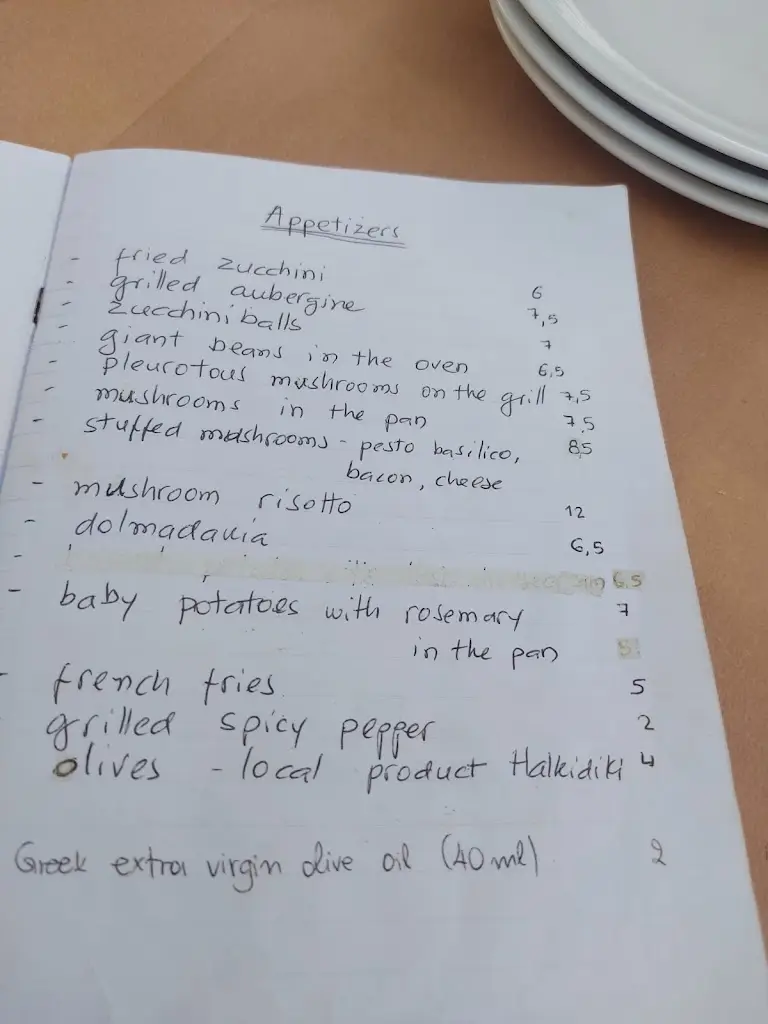 Appetizers
- fried zucchini 6
- grilled aubergine 7,5
- zucchini balls 7
- giant beans in the oven 6,5
- pleurotous mushrooms on the grill 7,5
- mushrooms in the pan 7,5
- stuffed mushrooms - pesto basilico, 8,5
bacon, cheese
- mushroom risotto 12
- dolmadakia 6,5
- 6,5
- baby potatoes with rosemary 7
in the pan 5
- french fries 5
grilled spicy pepper 2
olives - local product Halkidiki 4
Greek extra virgin olive oil (40 ml) 2